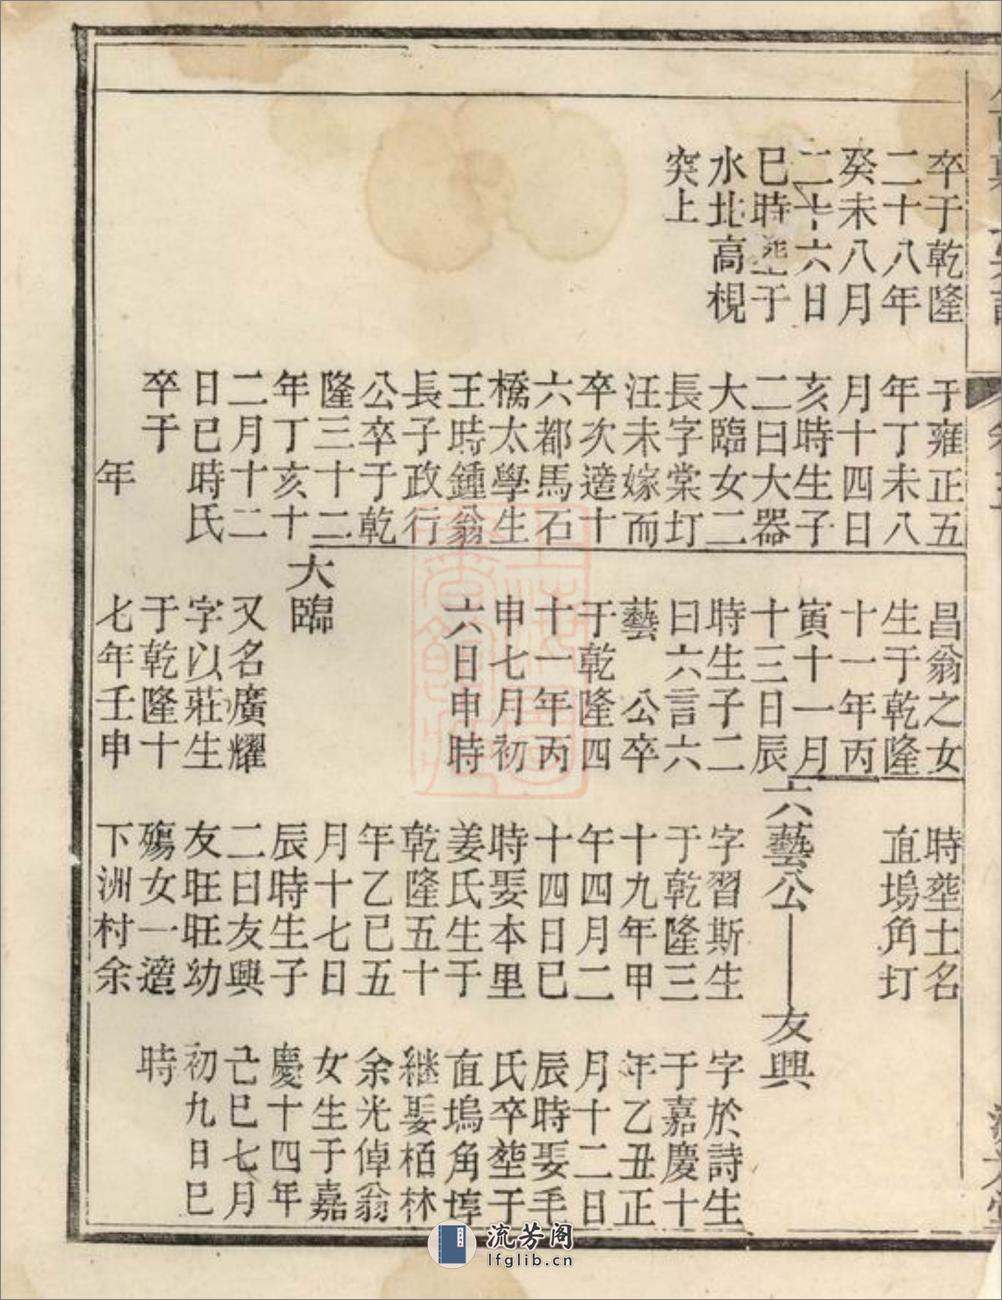 卒于乾隆
二十八年
癸未八月
二十六日
巳時塟于
水北高梘
突上
于雍正五
年丁未八
月十四日
亥時生子
二曰大器
大臨女二
長字棠圢
汪未嫁而
卒次適十
六都馬石
橋太學生
王時鍾翁
長子政行
公卒于乾
隆三十二
年丁亥十
二月十二
日巳時氏
卒于
年
昌翁之女
生于乾隆
十一年丙
寅十一月
十三日辰
時生子二
曰六言六
藝 公卒
于乾隆四
十一年丙
申七月初
六日申時
大臨
又名廣耀
字以莊生
于乾隆十
七年壬申
時塟土名
直塢角圢
六藝公——友興
字習斯生
于乾隆三
十九年甲
午四月二
十四日巳
時娶本里
姜氏生于
乾隆五十
年乙巳五
月十七日
辰時生子
二曰友興
友旺旺幼
殤女一適
下洲村余
字於詩生
于嘉慶十
年乙丑正
月十二日
辰時娶毛
氏卒塟于
直塢角垾
継娶栢林
余光倬翁
女生于嘉
慶十四年
己巳七月
初九日巳
時
流芳阁
lfglib.cn